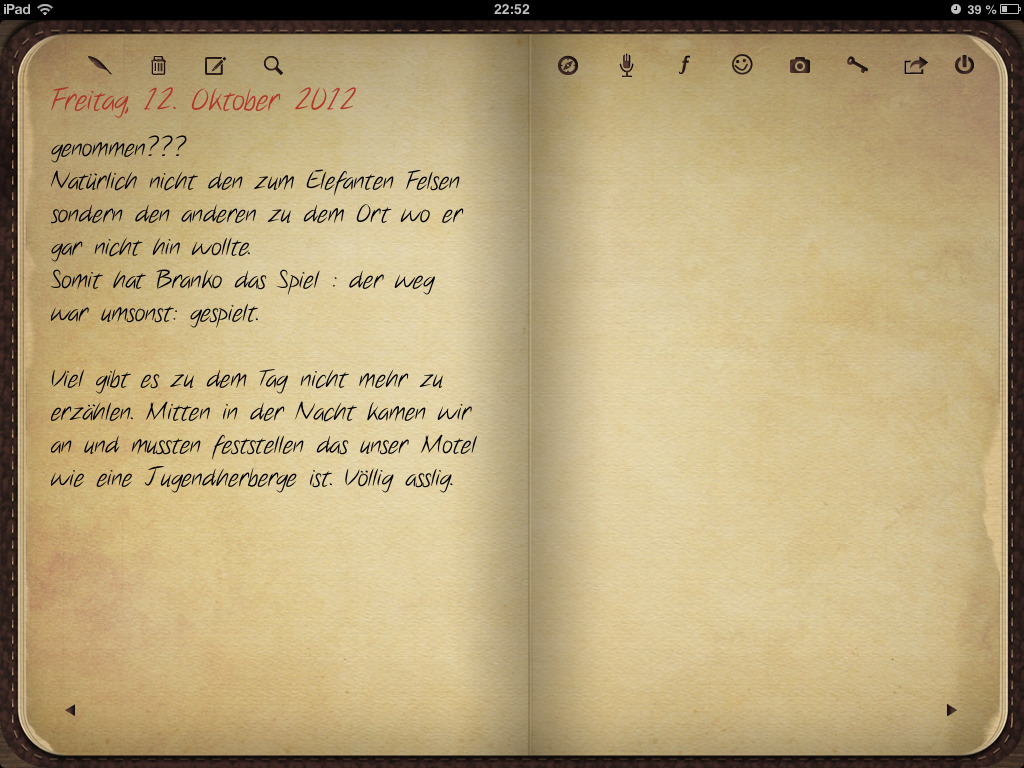 iPad 22:52 39 %
f
Freitag, 12. Oktober 2012
genommen???
Natürlich nicht den zum Elefanten Felsen
sondern den anderen zu dem Ort wo er
gar nicht hin wollte.
Somit hat Branko das Spiel : der weg
war umsonst: gespielt.
Viel gibt es zu dem Tag nicht mehr zu
erzählen. Mitten in der Nacht kamen wir
an und mussten feststellen das unser Motel
wie eine Jugendherberge ist. Völlig asslig.